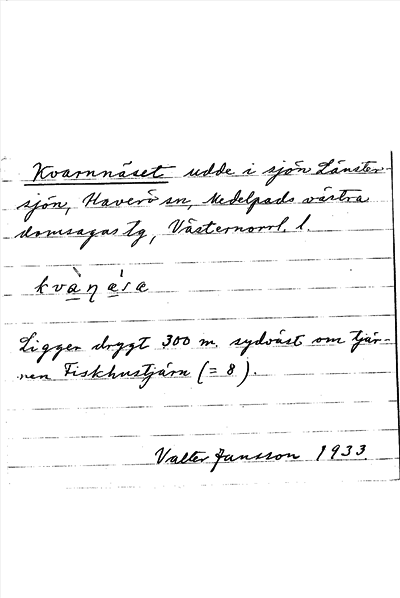 Kvarnnäset udde i sjön Länster-
sjön, Haverö sn, Medelpads västra
domsagas tg, Västernorrl. l.
kvàṇ ása
Ligger drygt 300 m. sydväst om tjär-
nen Fiskhustjärn (= 8).
Valter Jansson 1933.